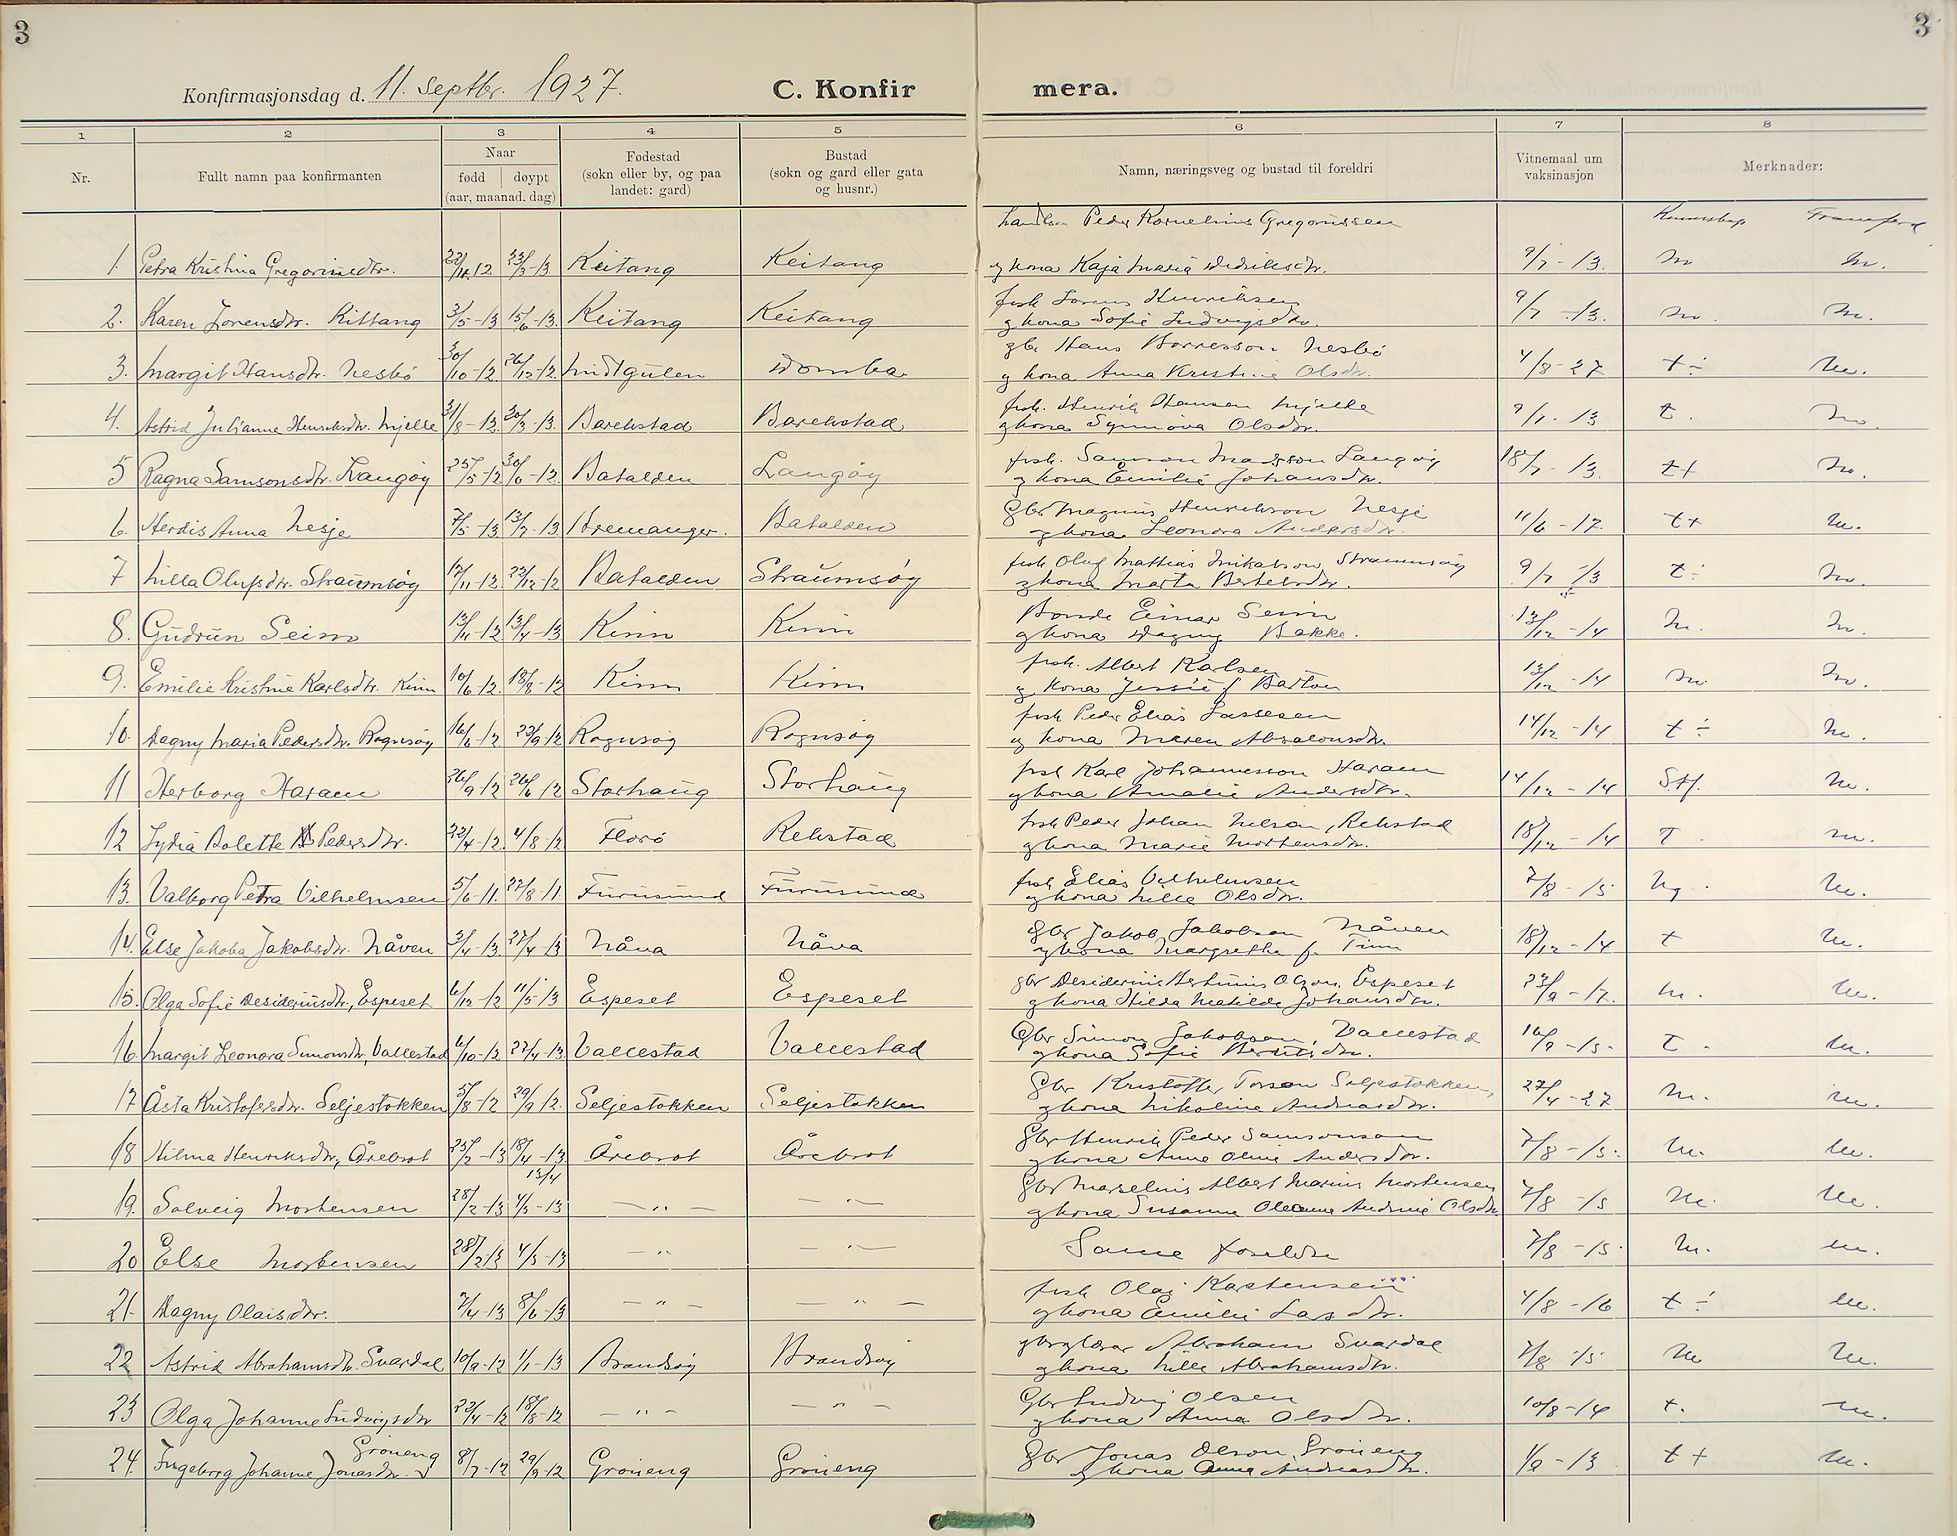 3
3
Konfirmasjonsdag d. 11. Septbr. 1927.
C. Konfir
mera.
1 2 3 4 5 6 7 8
Nr.
Fullt namn paa konfirmanten
Naar
fødd døypt
(aar, maanad. dag)
Fødestad
(sokn eller by, og paa
landet: gard)
Bustad
(sokn og gard eller gata
og husnr.)
Namn, næringsveg og bustad til foreldri
Vitnemaal um
vaksinasjon
Merknader:
Peder Kornelius Gregoriussen Kunnskap Framferd
1. Petra Kristina Gregoriusdtr. 22/11-12 23/3-13 Keitang Keitang og kona Kaja Maria Didriksdtr. 9/7-13. M M.
fisk Lorens Henriksen
2. Karen Lorensdtr. Kittang 3/5-13 15/6-13. Keitang Keitang og kona Sofie Ludvigsdtr. 9/7-13. M. M.
gbr Hans Borresson Nesbø
3. Margit Hansdtr. Nesbø 30/10-12. 26/12-12. Midtgulen Domba og kona Anna Kristine Olsdtr. 4/8-27 t÷ M.
fisk. Henrik Hansen Mjelle
4. Astrid Julianne Henriksdtr. Mjelle 31/8-12. 30/3-13. Barekstad Barekstad og kona Synnøva Olsdtr. 9/7-13 t. M.
fisk. Samson Madsson Langøy
5 Ragna Samsonsdtr. Langøy 25/5-12 30/6-12. Batalden Langøy og kona Emilie Johansdtr. 18/7-13. t+ M.
Gbr Magnus Henrikson Nesje
6. Herdis Anna Nesje 7/5-13 13/7-13 Bremanger. Batalden og kona Leonora Andersdtr. 11/6-17. t+ M.
fisk Oluf Mathias Mikalson, Straumsøy
7 Milla Olufsdtr. Straumsøy 12/11-12. 22/12-12 Batalden Straumsøy og kona Marta Bertelsdtr. 9/7-13 t÷ M.
Bonde Einar Seim
8. Gudrun Seim 13/11-12 13/4-13 Kinn Kinn og kona Dagny Bakke. 13/12-14 M. M.
fisk. Albert Karlsen
9. Emilie Kristine Karlsdtr. Kinn 10/6-12. 18/8-12 Kinn Kinn og kona Jessie f Barton 13/12-14 M. M.
fisk Peder Elias Lassesen
10. Dagny Maria Pedersdtr. Rognsøy 16/6-12 22/9-12 Rognsøy Rognsøy og kona Maren Absalonsdtr. 14/12-14 t÷ M.
fisk Karl Johannesson Haram
11 Herborg Haram 26/9-12 Storhaug Storhaug og kona Amalie Andersdtr. 14/12-14 Stf. M.
fisk Peder Johan Nelson, Rekstad
12 Lydia Bolette Pedersdtr. 22/4-12. 4/8-12 Florø Rekstad og kona Marie Mortensdtr. 18/12-14 T. M.
fisk Elias Vilhelmsen
13. Valborg Petra Vilhelmsen 5/6-11. 27/8-11 Furusund Furusund og kona Milla Olsdtr. 7/8-15 Mg. M.
Gbr Jakob Jakobson Nåven
14. Else Jakoba Jakobsdtr. Nåven 3/4-13. 27/4-13 Nåva Nåva og kona Margrethe f. Tinn 18/12-14 t M.
gbr Desiderius Hertinius Olson, Espeset
15. Olga Sofie Desideriusdtr., Espeset 6/12-12 11/5-13 Espeset Espeset og kona Hilda Matilde Johansdtr. 23/9-17. M. M.
Gbr Simon Jakobson, Vallestad
16 Margit Leonora Simonsdtr, Vallestad 6/10-12 27/4-13 Vallestad Vallestad og kona Sofie Berntsdtr. 16/9-15. T. M.
Gbr Kristoffer Torson Seljestokken,
17 Åsta Kristofersdtr. Seljestokken 5/8-12 29/9-12. Seljestokken Seljestokken og kona Nikoline Andreasdtr. 27/4-27 M. M.
Gbr Henrik Peder Samsonson
18 Hilma Henriksdtr, Årebrot 25/2-13 18/4-13 Årebrot Årebrot og kona Anna Oline Andersdtr. 7/8-15. M. M.
13/4
Gbr Marselius Albert Marius Mortensen
19. Solveig Mortensen 28/2-13 4/5-13 — " — — " — og kona Susanna Oleanna Andrine Olsdtr 7/8-15 M. M.
20 Else Mortensen 28/2 13 4/5-13 — " — " — Same foreldre 7/8-15. M. M.
fisk Olai Karstensen
21. Dagny Olaisdtr. 7/4-13 8/6-13 — " — — " — og kona Emilie Lasdtr. 4/8-16 t÷ M.
Abraham Svardal
22 Astrid Abrahamsdtr. Svardal 10/9-12 1/1-13 Brandsøy Brandsøy og kona Milla Abrahamsdtr. 7/8-15 M M.
Gbr Ludvig Olsen
23 Olga Johanne Ludvigsdtr 22/4-12 18/8-12 — " — — " — og kona Anna Olsdtr. 10/8-14 t. M.
Grøneng
Gbr Jonas Olson Grøneng
24. Ingeborg Johanne Jonasdtr. 8/7-12 29/9-12 Grøneng Grøneng og kona Anna Andreasdtr. 1/9-13 t+ M.